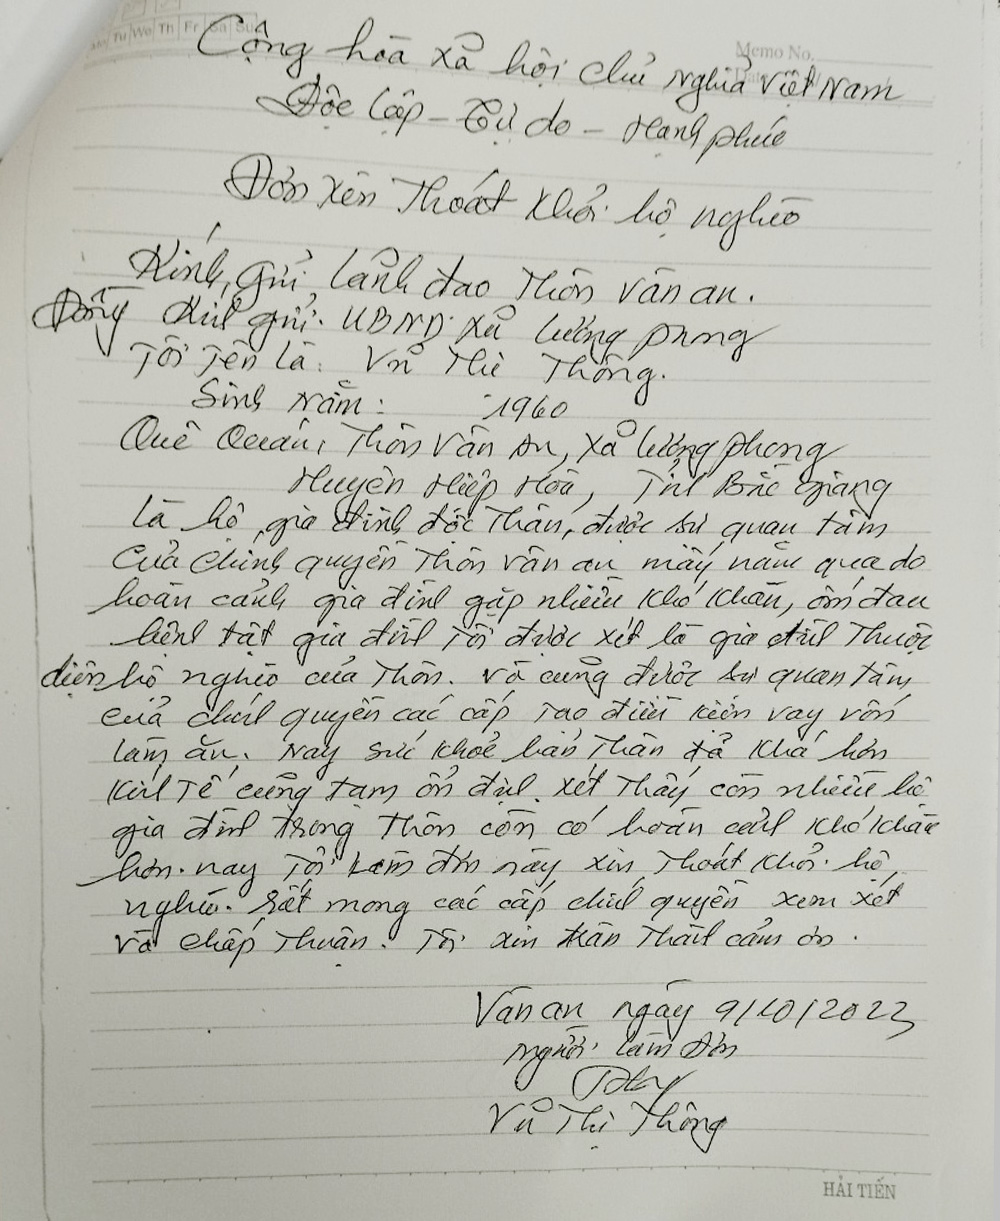 Tu We Th Fr Sa Su
Memo No.
Cộng hòa xã hội chủ nghĩa Việt Nam
Độc lập - Tự do - Hạnh phúc
Đơn xin thoát khỏi hộ nghèo
Kính gửi lãnh đạo Thôn Vân An.
Đồng kính gửi: UBND xã Lương Phong
Tôi tên là: Vũ Thị Thông.
Sinh năm: 1960
Quê Quán: Thôn Vân An, xã Lương Phong
Huyện Hiệp Hòa, Tỉnh Bắc Giang
Là hộ gia đình độc thân, được sự quan tâm
của chính quyền thôn Vân An mấy năm qua do
hoàn cảnh gia đình gặp nhiều khó khăn, ốm đau
bệnh tật gia đình tôi được xét là gia đình thuộc
diện hộ nghèo của thôn. và cũng được sự quan tâm
của chính quyền các cấp tạo điều kiện vay vốn
làm ăn. Nay sức khoẻ bản thân đã khá hơn
kinh tế cũng tạm ổn định. xét thấy còn nhiều hộ
gia đình trong thôn còn có hoàn cảnh khó khăn
hơn. nay tôi làm đơn này xin thoát khỏi hộ
nghèo. Rất mong các cấp chính quyền xem xét
và chấp thuận. Tôi xin chân thành cảm ơn.
Vân An ngày 9/10/2023
Người làm đơn
Vũ Thị Thông
HẢI TIẾN